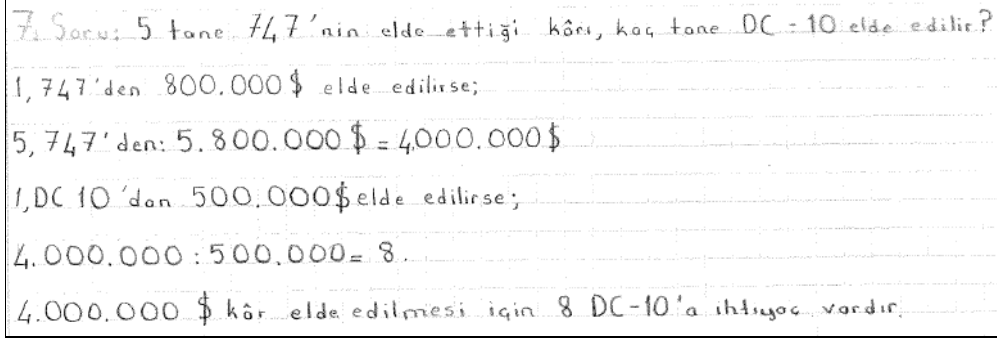 7. Soru: 5 tane 747'nin elde ettiği kârı, kaç tane DC-10 elde edilir?
1, 747'den 800.000$ elde edilirse;
5, 747'den: 5.800.000$ = 4000.000$
1, DC 10'dan 500.000$ elde edilirse;
4.000.000 : 500.000 = 8.
4.000.000 $ kâr elde edilmesi için 8 DC-10'a ihtiyaç vardır.